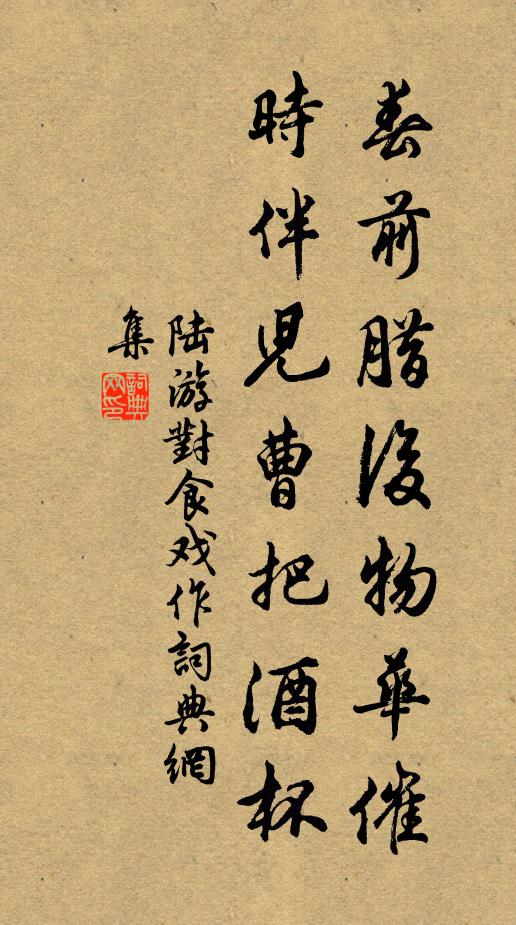 春前腊後物華催
時伴児曹把酒杯
陆游對食戏作詞典網
集
詞典網印